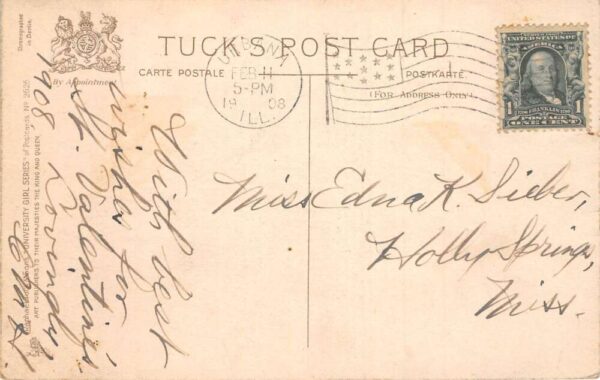 TUCK'S POST CARD
CARTE POSTALE
POSTKARTE
(FOR ADDRESS ONLY)
By Appointment
URBANA
FEB 11
5-PM
1908
ILL.
UNITED STATES OF AMERICA
1 FRANKLIN 1
POSTAGE
ONE CENT
Miss Edna K. Sieber,
Holly Springs,
Miss.
With best
wishes for
St. Valentine's
1908. Lovingly
"UNIVERSITY GIRL SERIES" of Postcards, No 2626
ART PUBLISHERS TO THEIR MAJESTIES THE KING AND QUEEN.